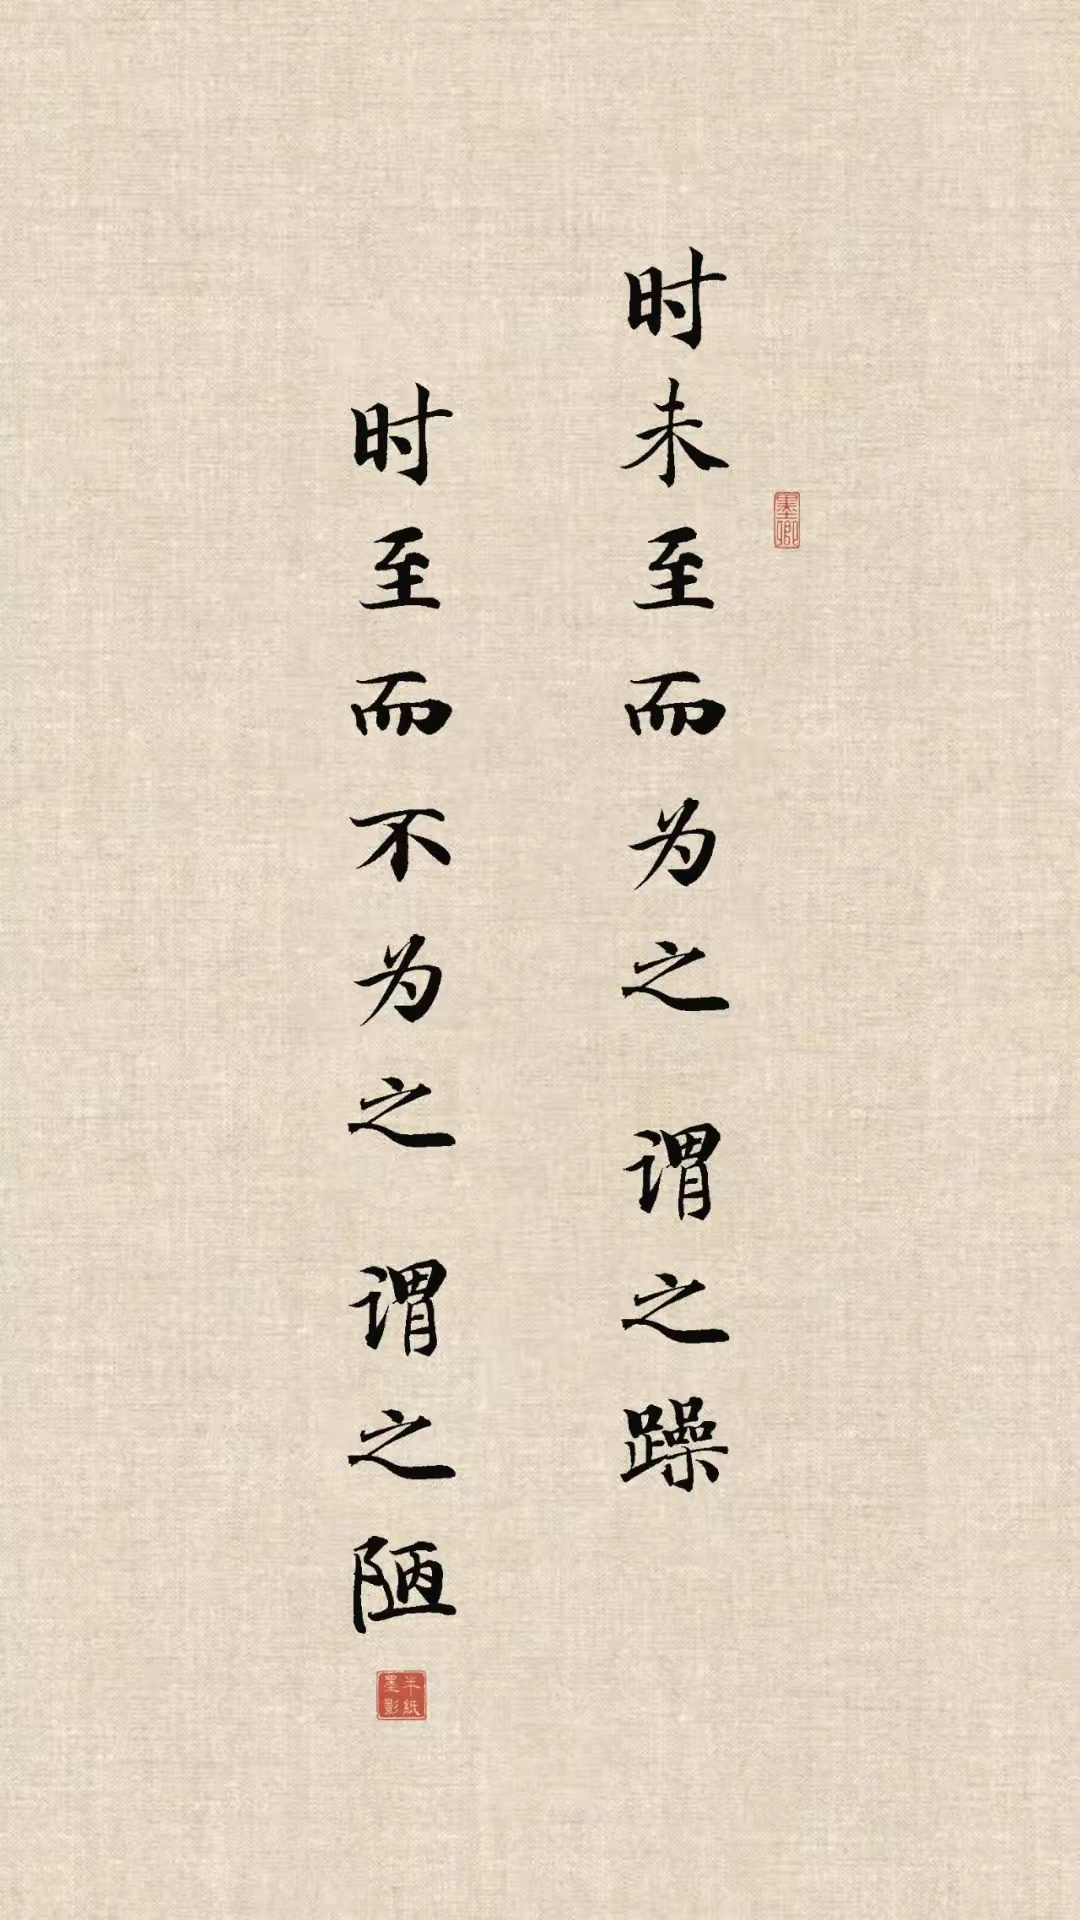 时未至而为之 谓之躁
时至而不为之 谓之陋
墨卿
半纸
墨影